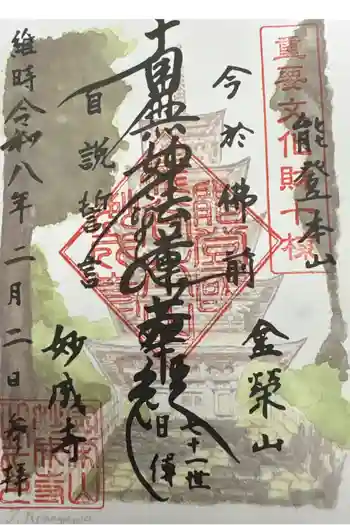 重要文化財十棟
能登本山
金榮山
今於佛前
南無妙法蓮華経
七十一世
日偉
自説誓言
妙成寺
維時令和八年二月二日 参拝